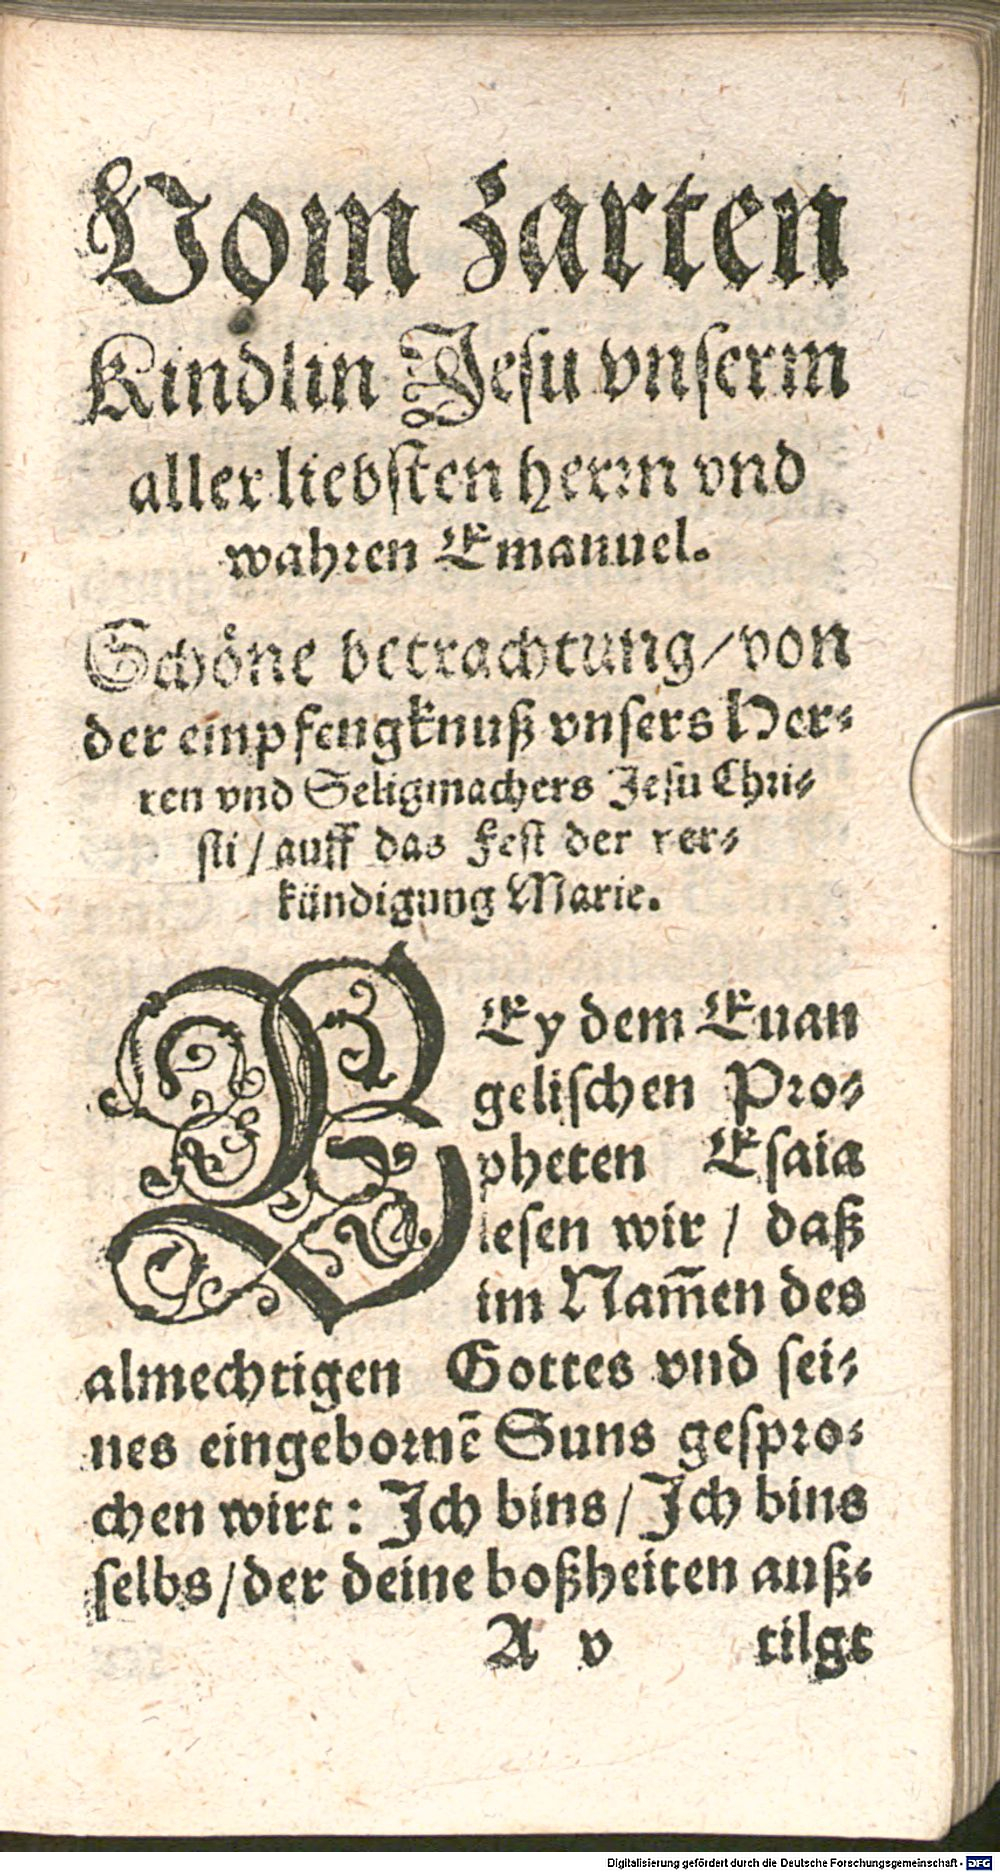 Vom zarten
Kindlin Jesu vnserm
aller liebsten herrn vnd
wahren Emanuel.
Schöne betrachtung/von
der empfengknuß vnsers Her-
ren vnd Seligmachers Jesu Chri-
sti/auff das Fest der ver-
kündigung Marie.
BEy dem Euan
gelischen Pro-
pheten Esaia
lesen wir/ daß
im Nam̄en des
almechtigen Gottes vnd sei-
nes eingebornē Suns gespro-
chen wirt: Ich bins/Ich bins
selbs/der deine boßheiten auß-
A v tilgt
Digitalisierung gefördert durch die Deutsche Forschungsgemeinschaft - DFG